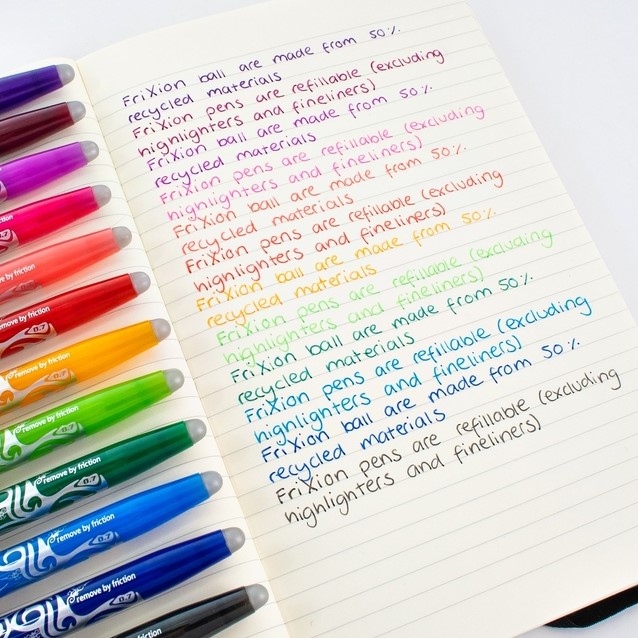 FriXion ball are made from 50%
recycled materials
FriXion pens are refillable (excluding
highlighters and fineliners)
FriXion ball are made from 50%
recycled materials
FriXion pens are refillable (excluding
highlighters and fineliners)
FriXion ball are made from 50%
recycled materials
FriXion pens are refillable (excluding
highlighters and fineliners)
FriXion ball are made from 50%
recycled materials
FriXion pens are refillable (excluding
highlighters and fineliners)
FriXion ball are made from 50%
recycled materials
FriXion pens are refillable (excluding
highlighters and fineliners)
FriXion ball are made from 50%
recycled materials
FriXion pens are refillable (excluding
highlighters and fineliners)
friction
remove by friction
remove by friction
0.7
remove by friction
remove by friction
0.7
remove by friction
0.7
remove by friction
0.7
remove by friction
0.7
friction